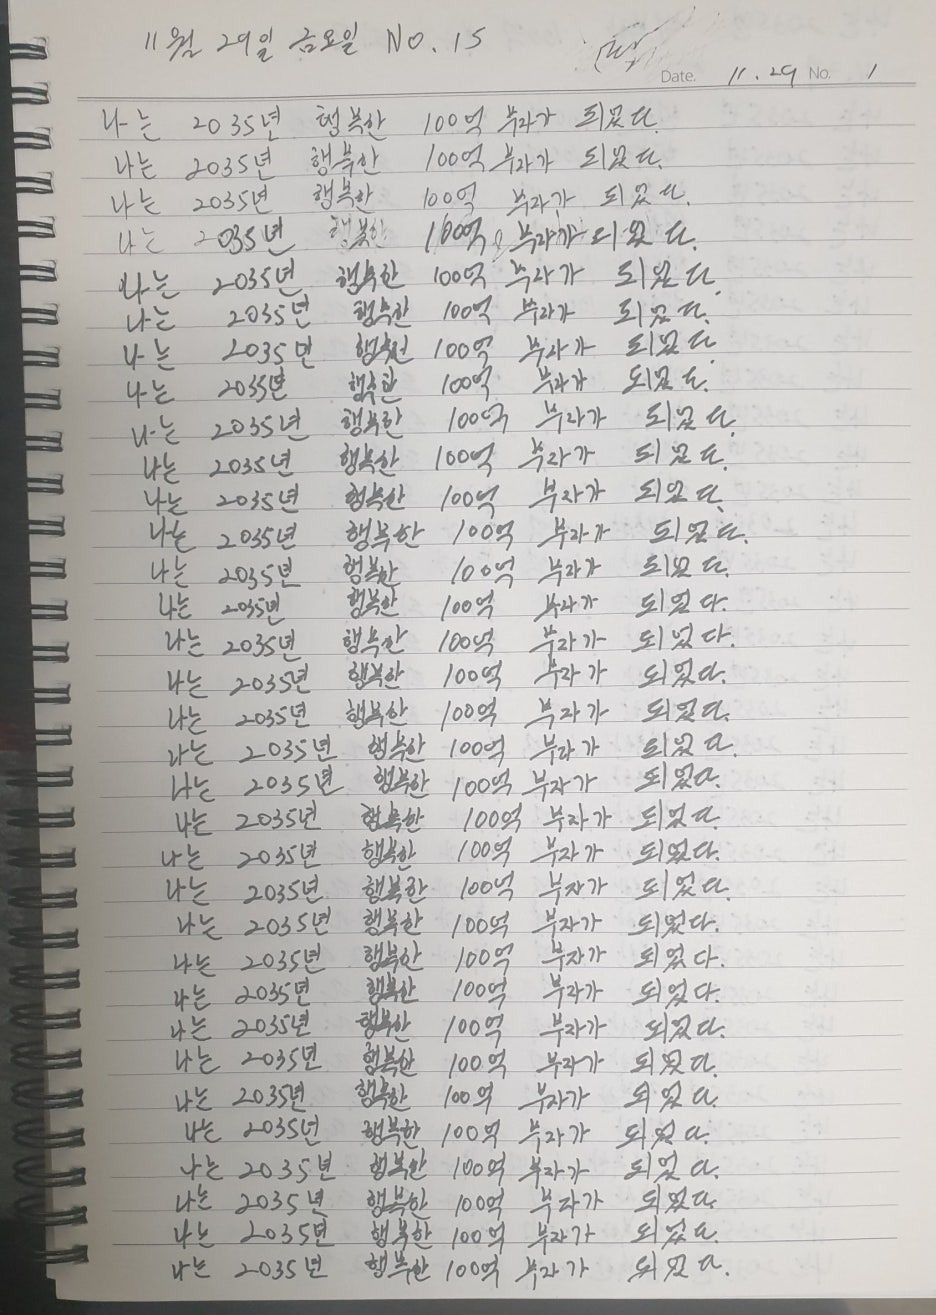 11월 29일 금요일 NO. 15
Date. 11. 29 No. 1
나는 2035년 행복한 100억 부자가 되었다.
나는 2035년 행복한 100억 부자가 되었다.
나는 2035년 행복한 100억 부자가 되었다.
나는 2035년 행복한 100억 부자가 되었다.
나는 2035년 행복한 100억 부자가 되었다.
나는 2035년 행복한 100억 부자가 되었다.
나는 2035년 행복한 100억 부자가 되었다.
나는 2035년 행복한 100억 부자가 되었다.
나는 2035년 행복한 100억 부자가 되었다.
나는 2035년 행복한 100억 부자가 되었다.
나는 2035년 행복한 100억 부자가 되었다.
나는 2035년 행복한 100억 부자가 되었다.
나는 2035년 행복한 100억 부자가 되었다.
나는 2035년 행복한 100억 부자가 되었다.
나는 2035년 행복한 100억 부자가 되었다.
나는 2035년 행복한 100억 부자가 되었다.
나는 2035년 행복한 100억 부자가 되었다.
나는 2035년 행복한 100억 부자가 되었다.
나는 2035년 행복한 100억 부자가 되었다.
나는 2035년 행복한 100억 부자가 되었다.
나는 2035년 행복한 100억 부자가 되었다.
나는 2035년 행복한 100억 부자가 되었다.
나는 2035년 행복한 100억 부자가 되었다.
나는 2035년 행복한 100억 부자가 되었다.
나는 2035년 행복한 100억 부자가 되었다.
나는 2035년 행복한 100억 부자가 되었다.
나는 2035년 행복한 100억 부자가 되었다.
나는 2035년 행복한 100억 부자가 되었다.
나는 2035년 행복한 100억 부자가 되었다.
나는 2035년 행복한 100억 부자가 되었다.
나는 2035년 행복한 100억 부자가 되었다.
나는 2035년 행복한 100억 부자가 되었다.
나는 2035년 행복한 100억 부자가 되었다.